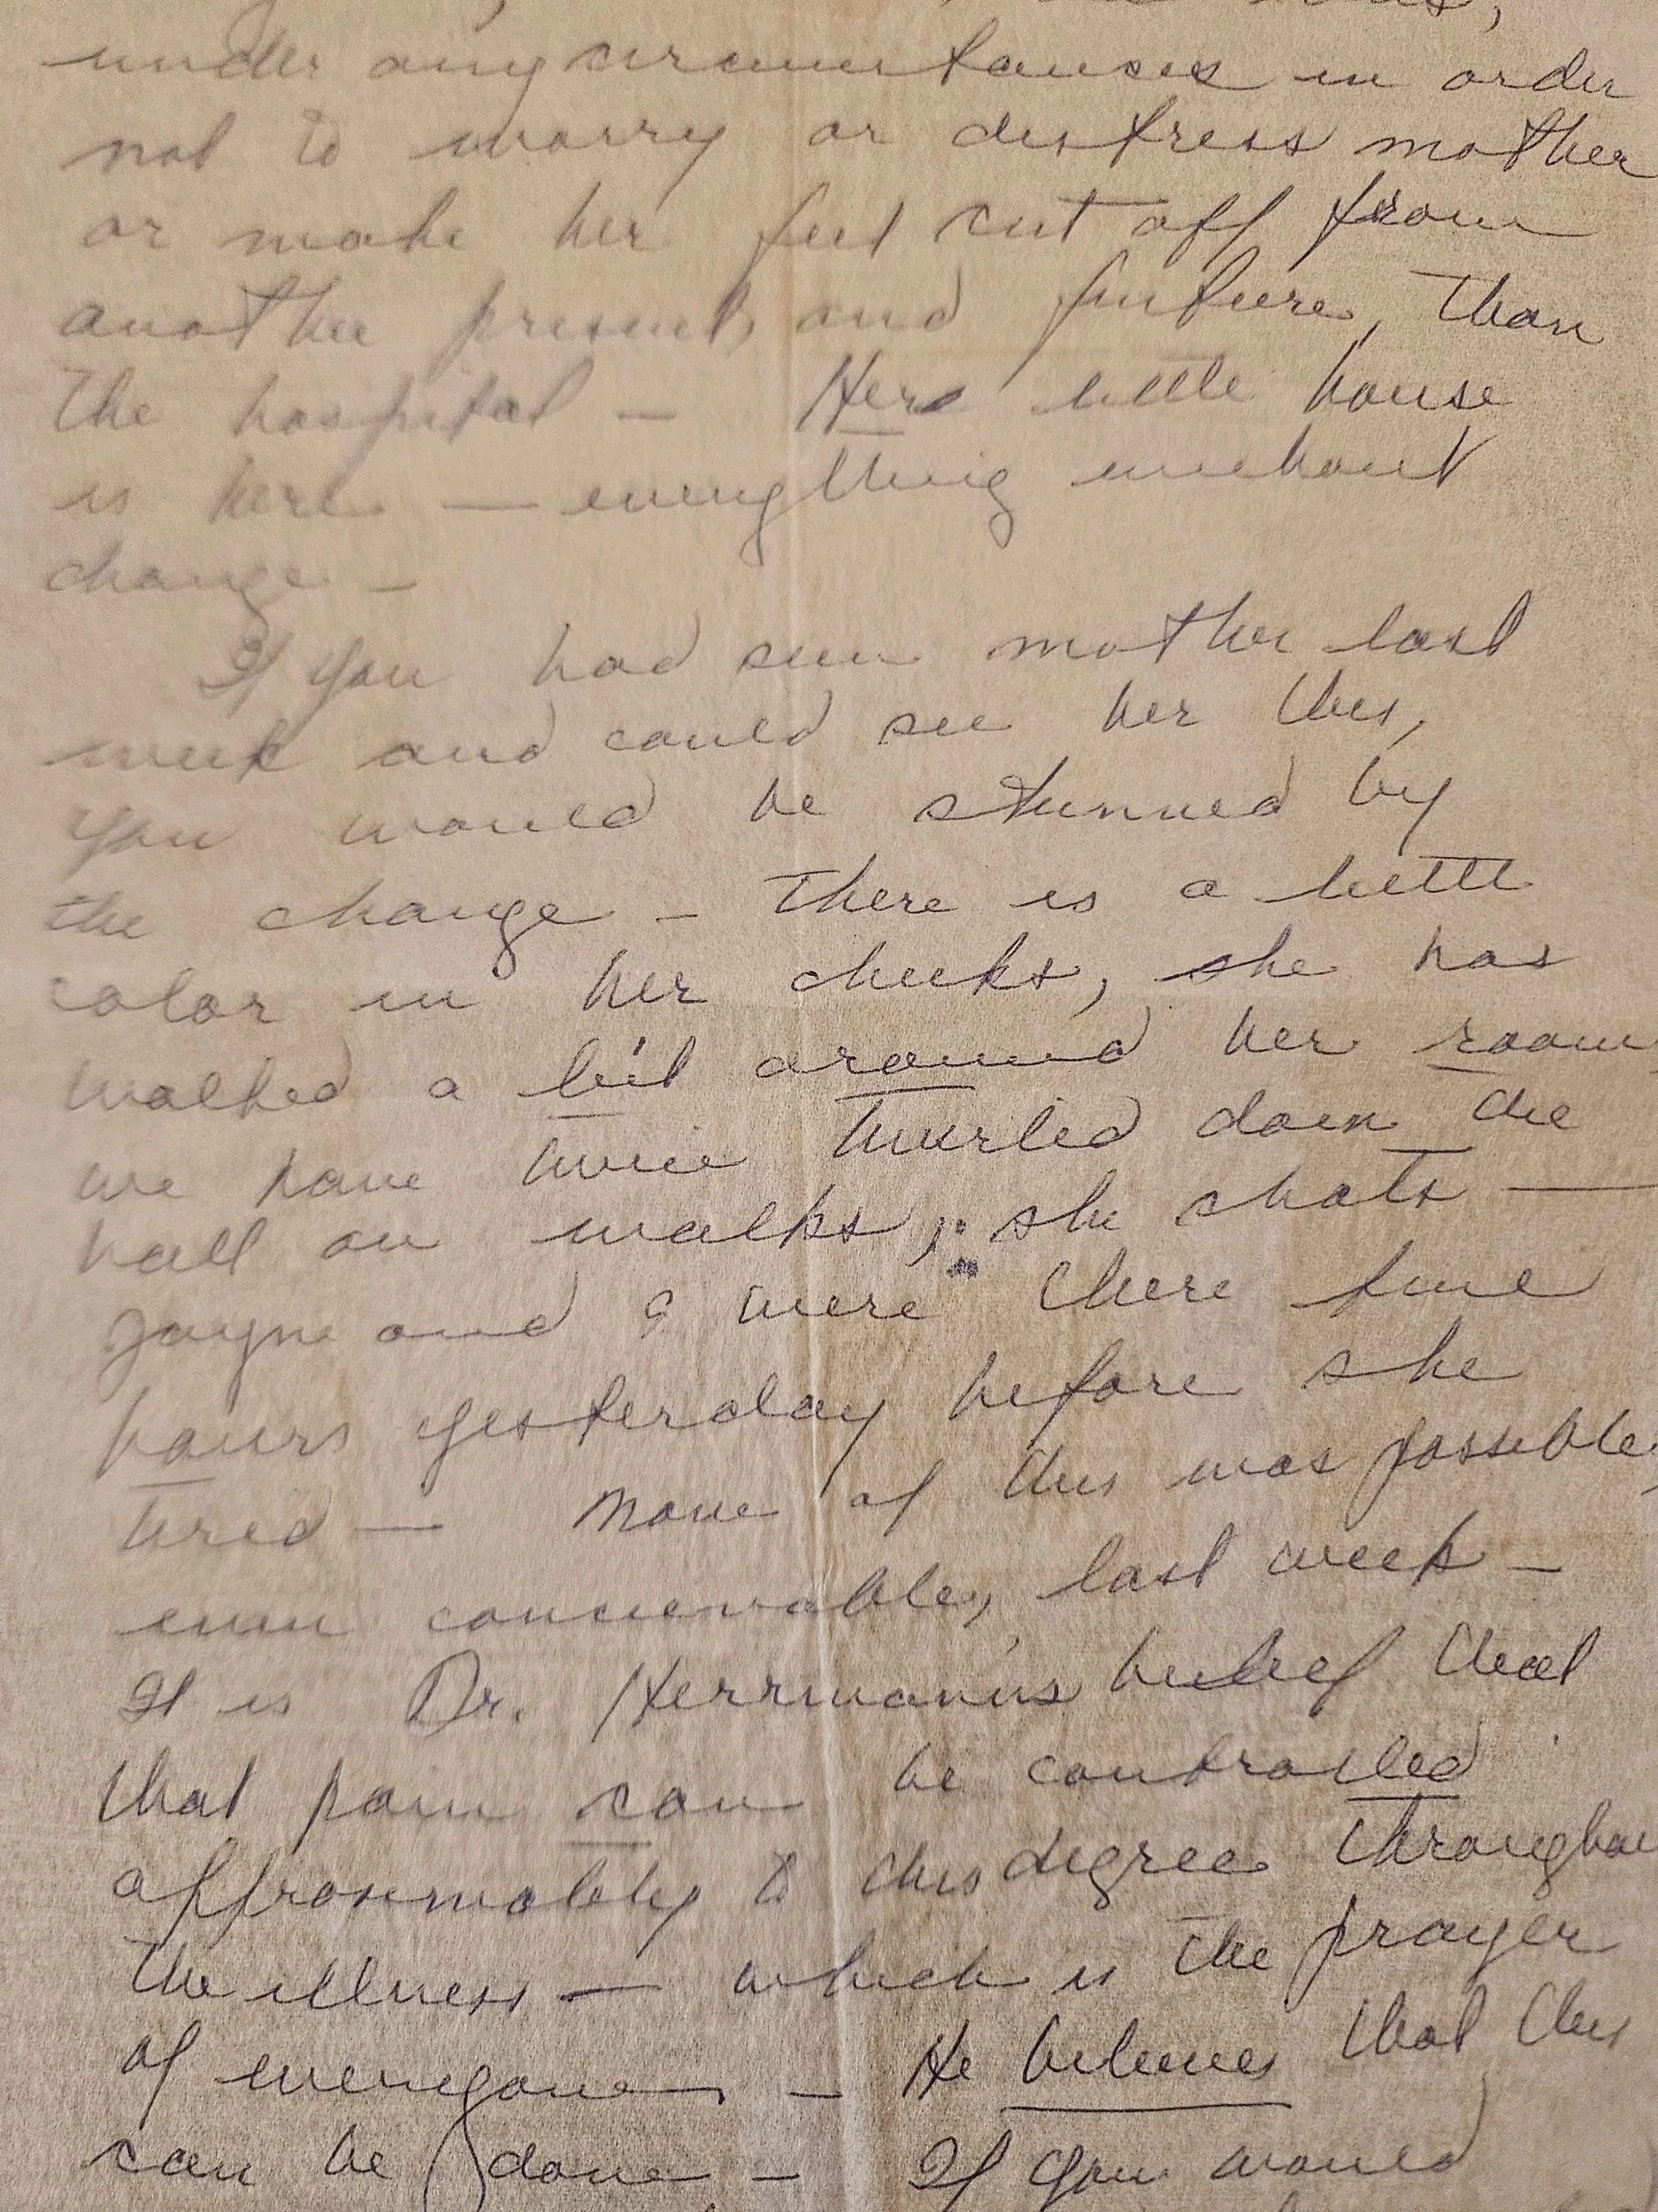 under any circumstances in order
not to worry or distress mother
or make her feel cut off from
another present, and future, than
the hospital — Her little house
is here — everything without
change —
If you had seen mother last
week and could see her this,
you would be stunned by
the change — There is a little
color in her cheeks, she has
walked a bit around her room
we have twice twirled down the
hall on walks, she chats —
Jayne and I were there five
hours yesterday before she
tired — None of this was possible,
even conceivable, last week —
It is Dr. Herrmann's belief that
that pain can be controlled
approximately to this degree throughou
the illness — which is the prayer
of everyone — He believes that this
can be done — If you would